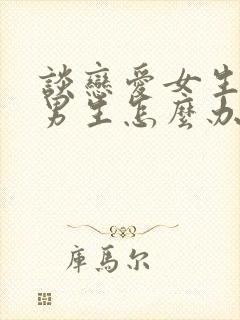 談戀愛女生
男生怎麼办
庫馬尔